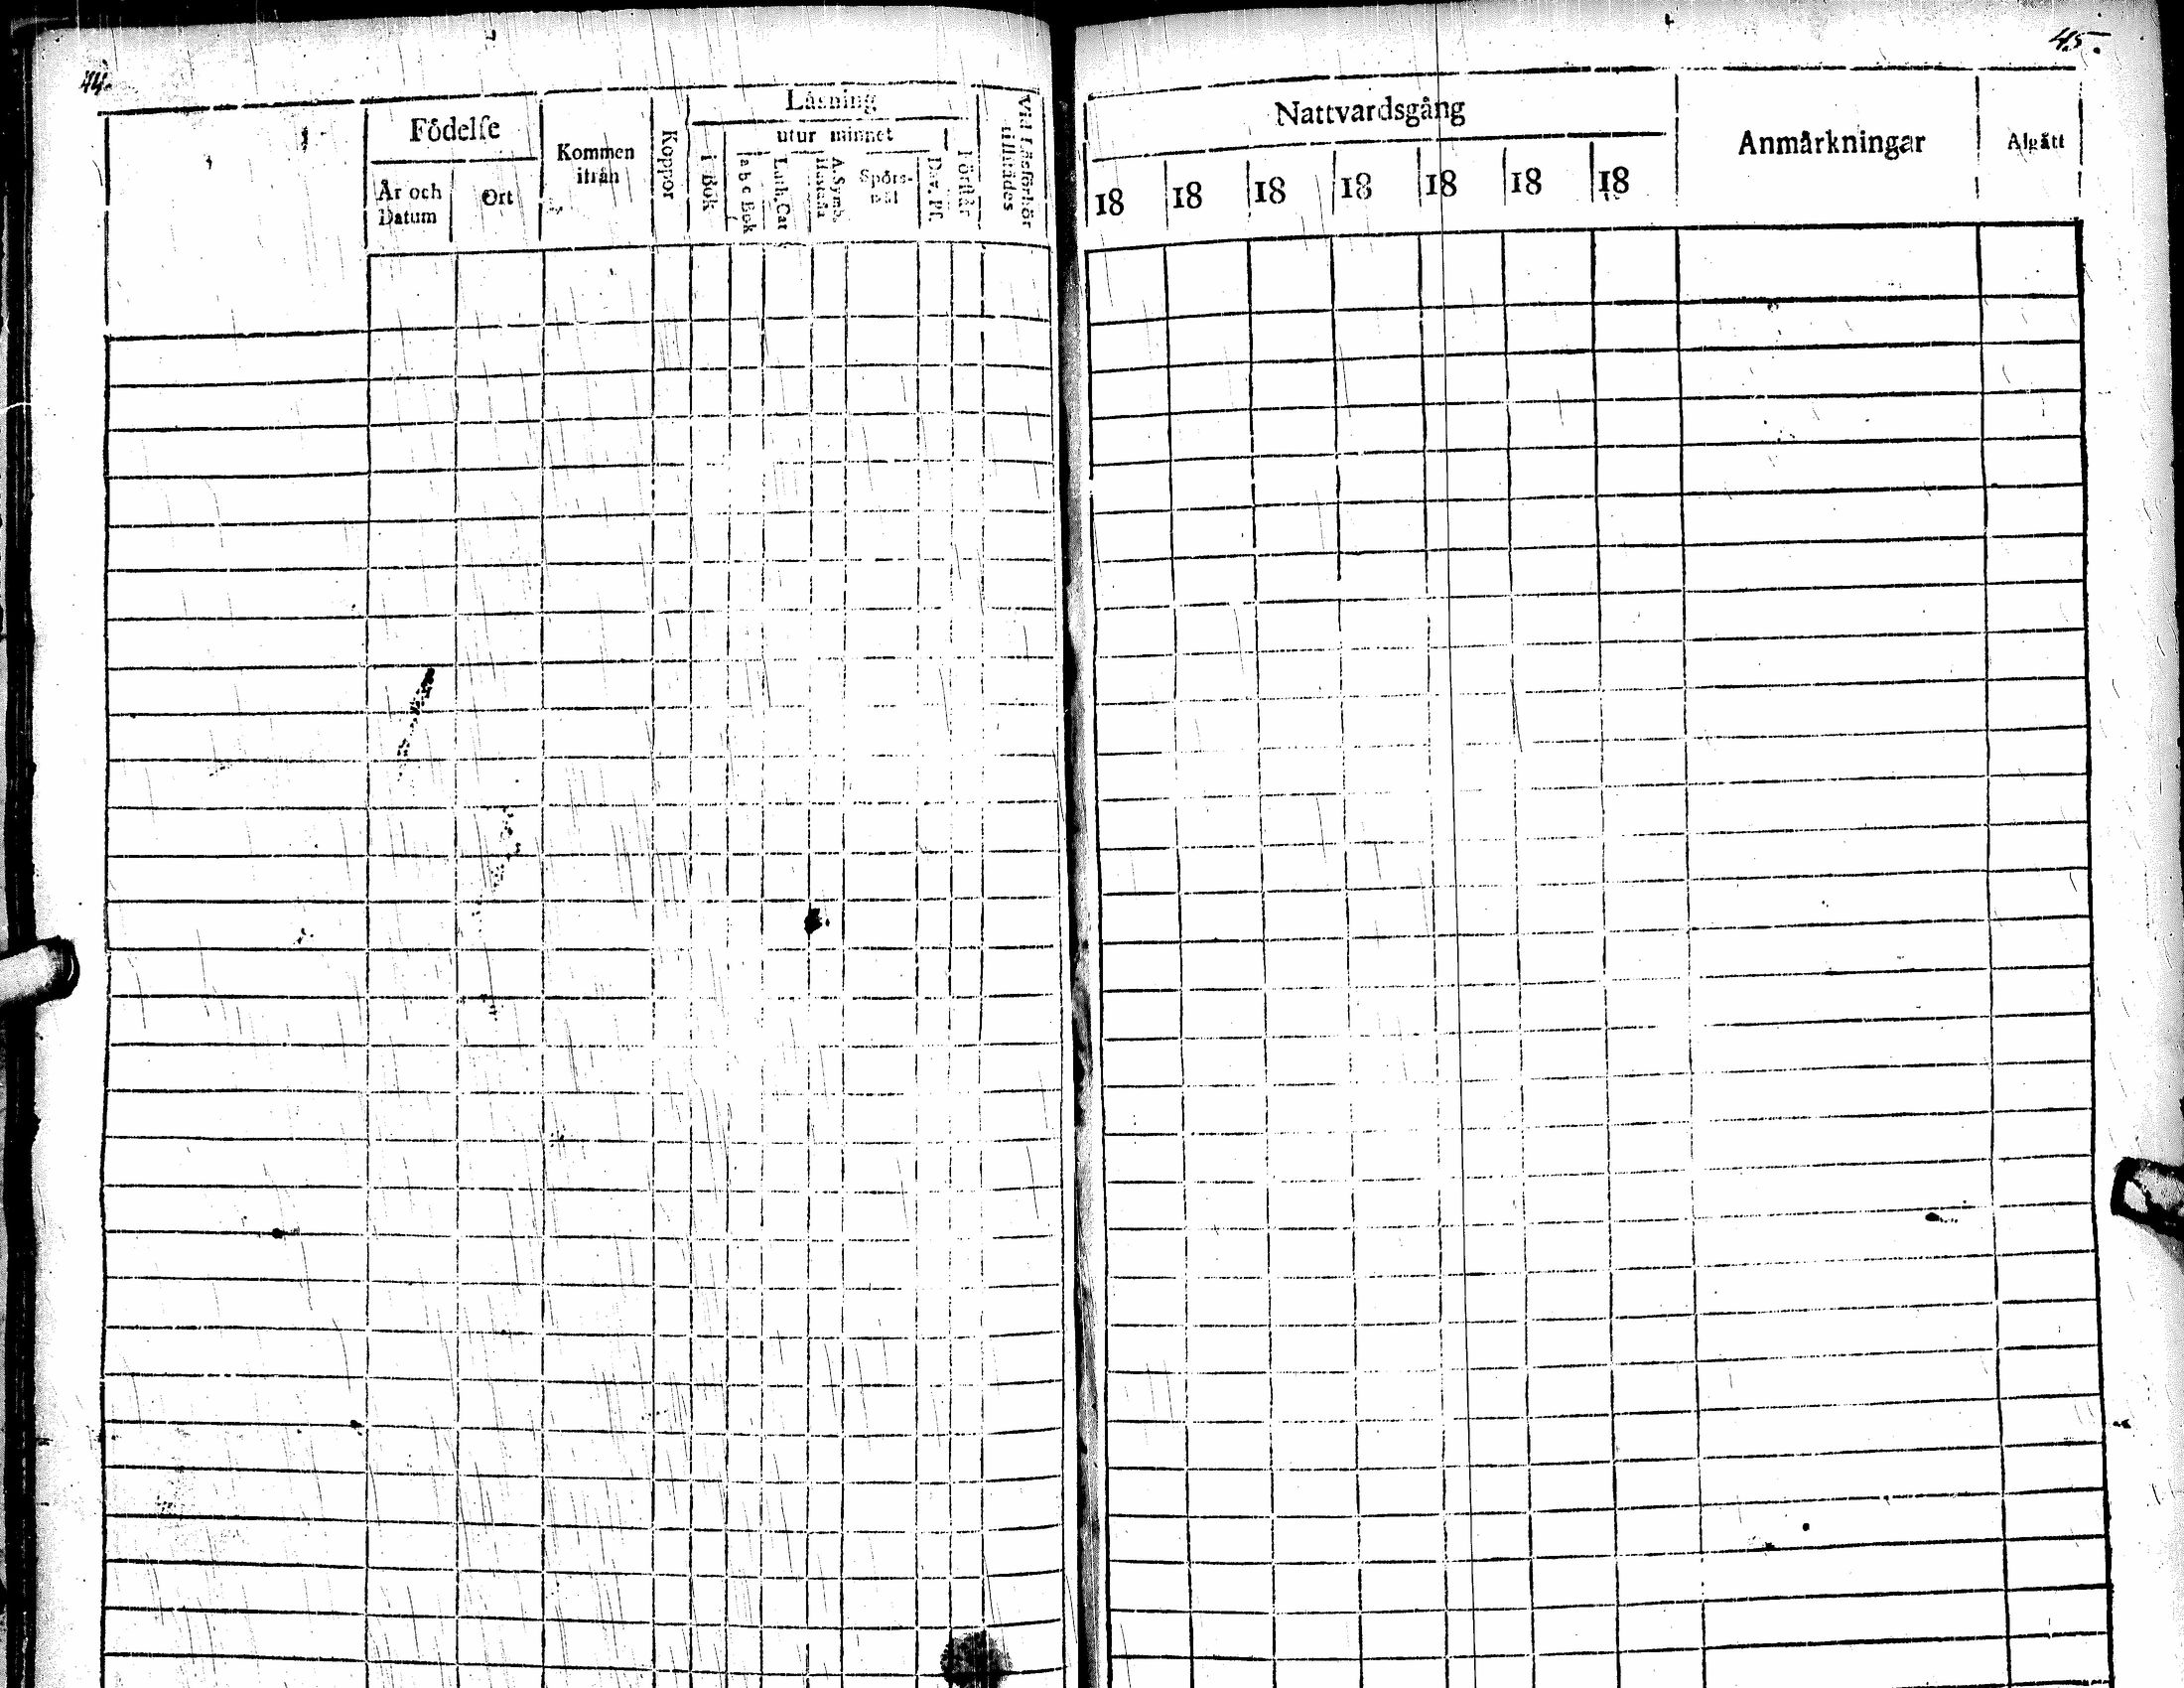 44.
Födelse
År och
Datum
Ort
Kommen
ifrån
Koppor
Läsning
i Bok
utur minnet
a b c Bok
Luth. Cat
A. Symb.
Hustafla
Spörs-
mål
Dav. Ps.
Förstår
Vid Läsförhör
tillstädes
45.
Nattvardsgång
18
18
18
18
18
18
18
Anmärkningar
Afgått